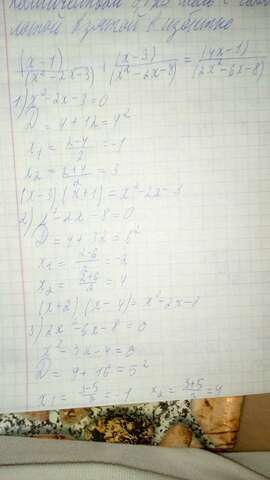 (x-1)/(x²-2x-3) + (x-3)/(x²-2x-8) = (4x-1)/(2x²-6x-8)
1) x²-2x-3=0
D = 4+12=4²
x₁ = (2-4)/2 = -1
x₂ = (2+4)/2 = 3
(x-3)(x+1) = x²-2x-3
2) x²-2x-8=0
D = 4+32=6²
x₁ = (2-6)/2 = -2
x₂ = (2+6)/2 = 4
(x+2)(x-4) = x²-2x-8
3) 2x²-6x-8=0
x²-3x-4=0
D = 9+16=5²
x₁ = (3-5)/2 = -1 x₂ = (3+5)/2 = 4